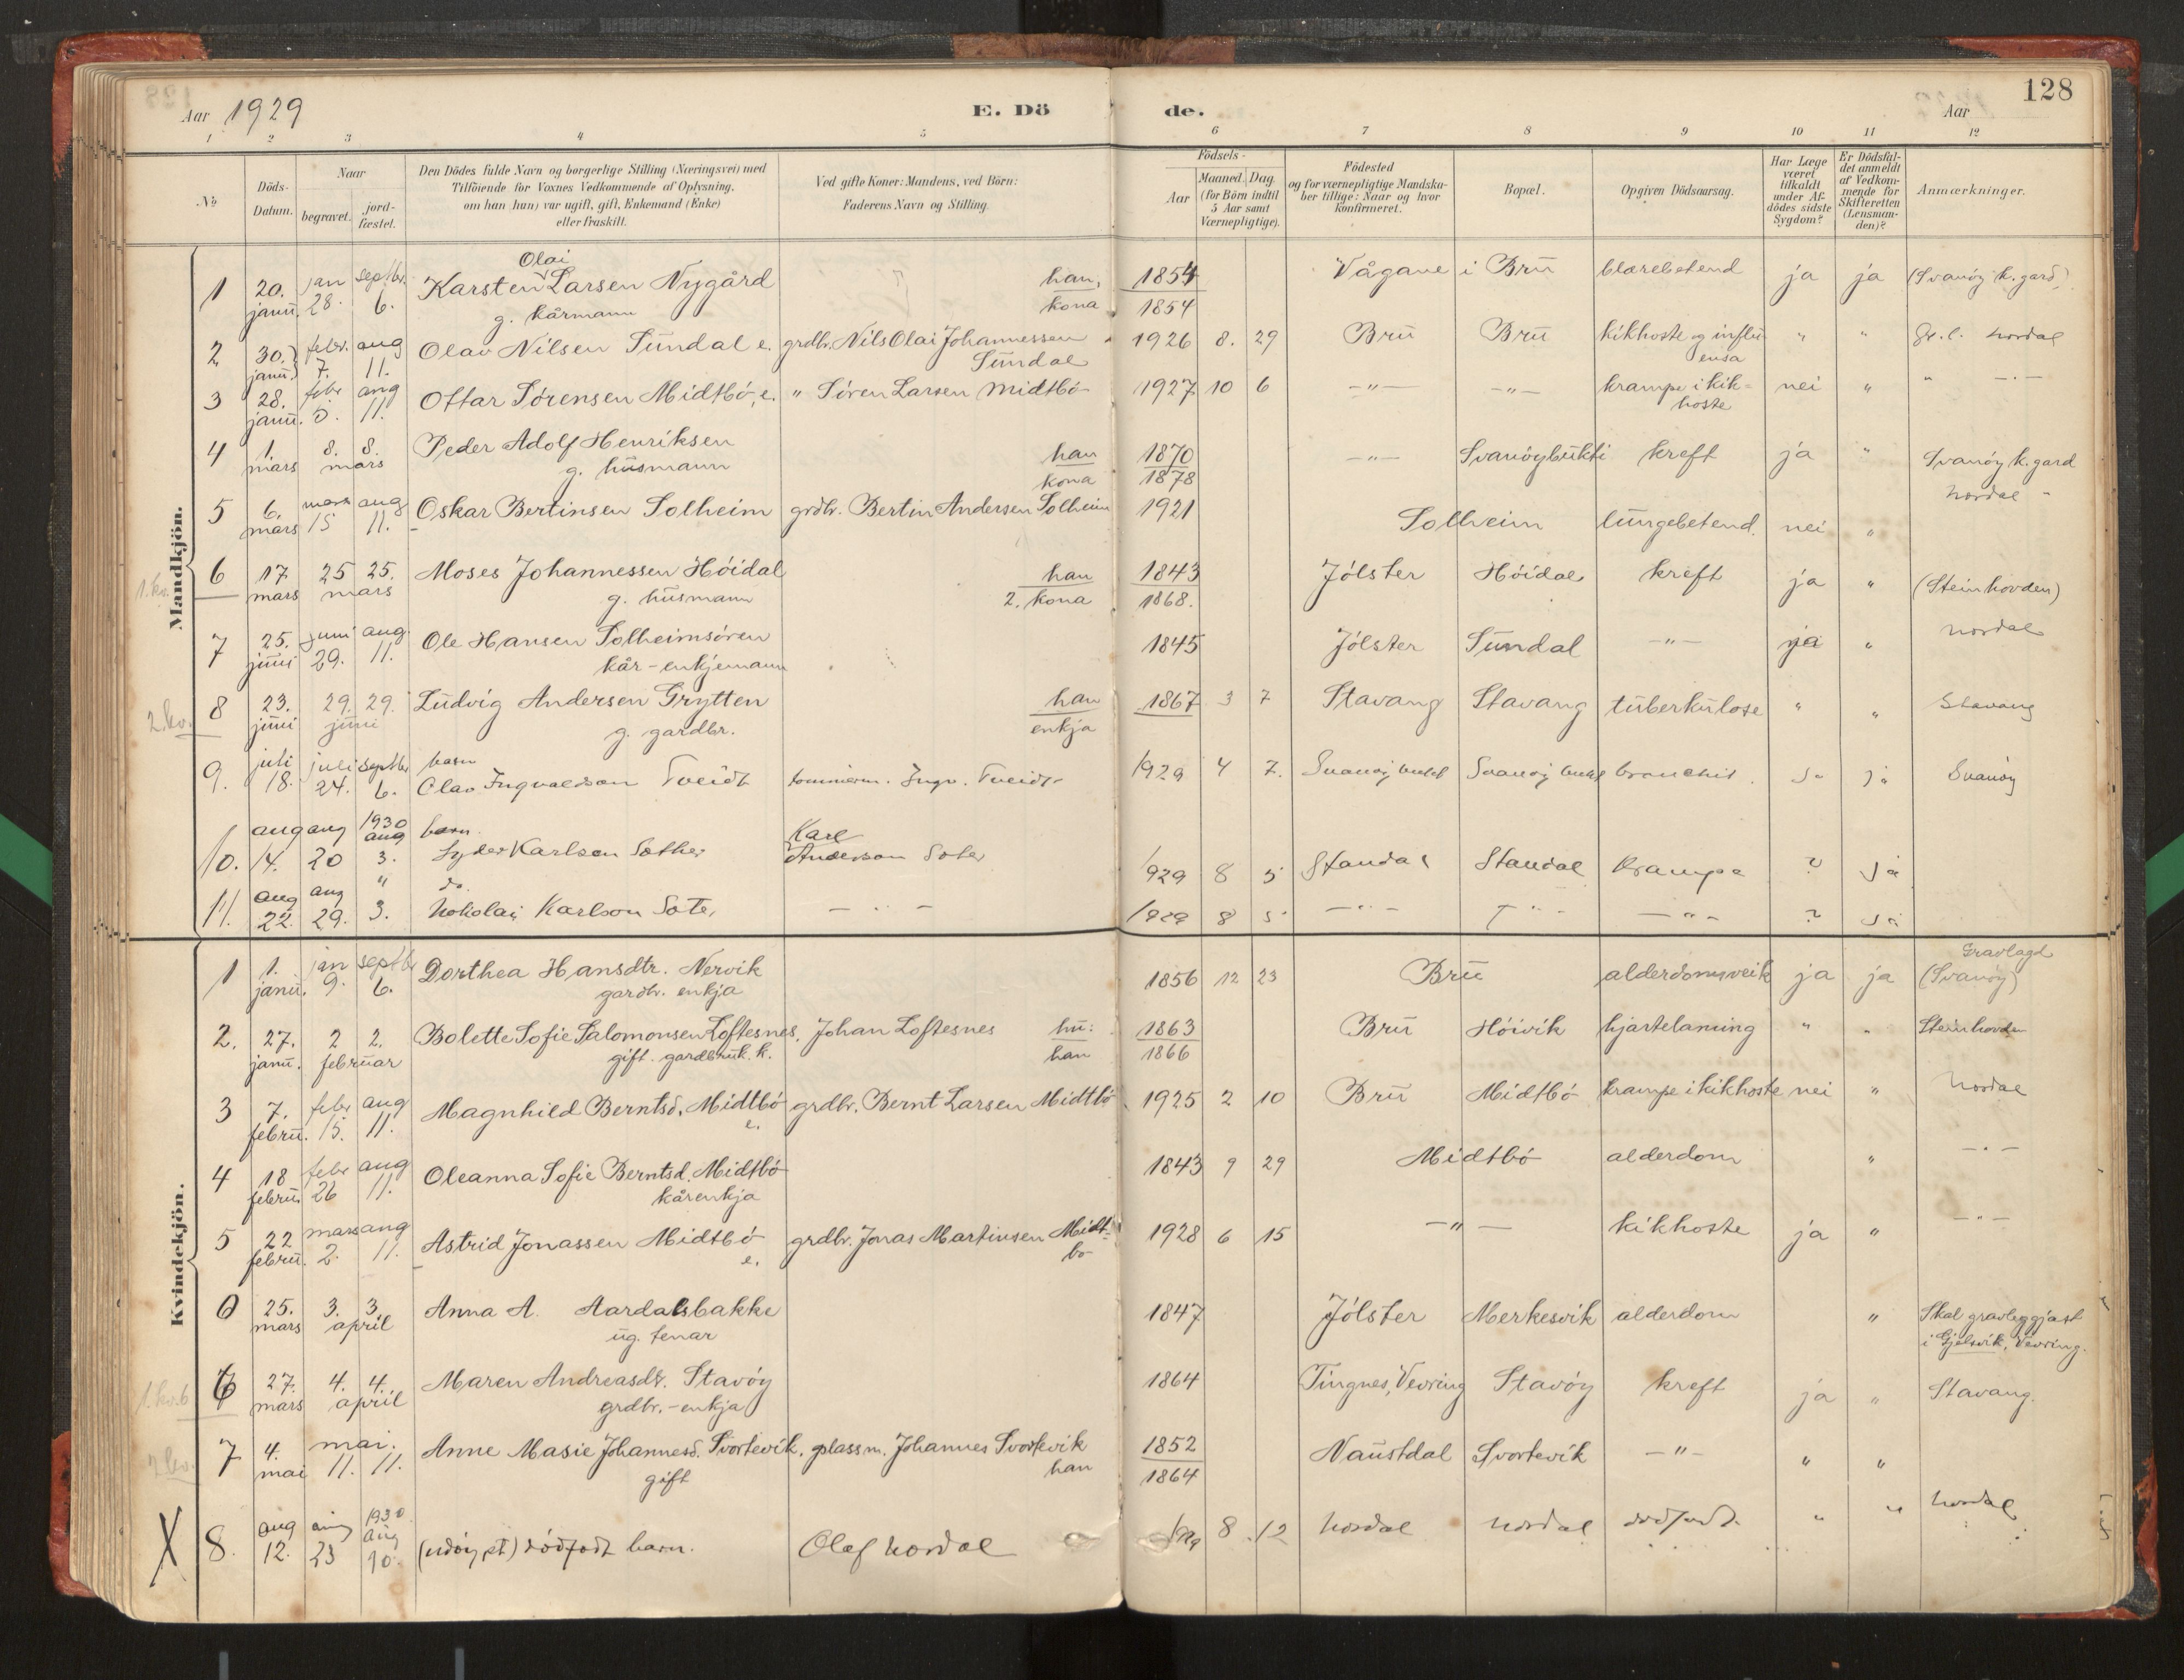 128
Aar 1929
E. Dö
de.
Aar
1 2 3 4 5 6 7 8 9 10 11 12
No
Döds-Datum.
Naar
begravet.
jord-fæstet.
Den Dödes fulde Navn og borgerlige Stilling (Næringsvei) med
Tilföiende for Voxnes Vedkommende af Oplysning,
om han (hun) var ugift, gift, Enkemand (Enke)
eller fraskilt.
Ved gifte Koner: Mandens, ved Börn:
Faderens Navn og Stilling.
Födsels-
Aar
Maaned. Dag.
(for Börn indtil
5 Aar samt
Værnepligtige).
Födested
og for værnepligtige Mandska-
ber tillige: Naar og hvor
konfirmeret.
Bopæl.
Opgiven Dödsaarsag.
Har Læge
været
tilkaldt
under Af-
dödes sidste
Sygdom?
Er Dödsfal-
det anmeldt
af Vedkom-
mende for
Skifteretten
(Lensman-
den)?
Anmærkninger.
Mandkjön.
Olai
1 20. jan septbr. Karsten Larsen Nygård han, 1854 Vågane i Brū blærebetend ja ja (Svanöy k. gard)
janū. 28. 6. g. kårmann kona 1854
2 30. febr. aug Olav Nilsen Sūndal e. grdbr. Nils Olai Johannessen 1926 8. 29 Brū Brū kikhoste og influ " " Gr. l. Nordal
janū. 7. 11. Sūndal ensa
3 28. febr aug Ottar Sørensen Midtbö, e. " Søren Larsen Midtbö 1927 10 6 -"- -"- krampe i kik= nei " " -"-
janū. 5. 11. hoste
4 1. 8. 8. Peder Adolf Henriksen han 1870 -"- Svanöybūkti kreft ja " Svanöy k. gard
mars mars g. hūsmann kona 1878
5 6. mars aug Oskar Bertinsen Solheim grdbr. Bertin Andersen Solheim 1921 Solheim lūngebetend. nei " Nordal
mars 15 11.
1. kv. 6 17 25 25. Moses Johannessen Höidal han 1843 Jölster Höidal kreft ja " (Steinhovden)
mars mars g. hūsmann 2. kona 1868.
7 25. juni aug. Ole Hansen Solheimsören 1845 Jölster Sūndal -"- ja " Nordal
jūni 29. 11. kår-enkjemann
2. kv. 8 23. 29. 29. Lūdvig Andersen Grytten han 1867 3 7 Stavang Stavang tūberkūlose " " Stavang
jūni jūni g. gardbr. enkja
9. juli juli septbr barn
18. 24. 6. Olav Ingvaldson Tveidt tømmerm. Ingv. Tveidt 1929 4 7. Svanöy bukt Svanöy bukt bronchit. Ja ja Svanöy
aug aug 1930 aug barn. Karl
10. 14. 20 3. Karlson Søther Anderson Søter 1929 8 5 Standal Standal Krampe ? Ja
aug aug " do.
11. 22. 29. 3. Nokolai Karlson Søter -"- 1929 8 5 -"- -"- -"- ? Ja
Kvindekjön.
1 1. jan septbr Dorthea Hansdtr. Nervik 1856 12 23 Brū alderdomsveik ja ja Gravlagd
janū. 9. 6. gardbr. enkja (Svanöy)
2. 27. 2 2. Bolette Sofie Salomonsen Loftesnes, Johan Loftesnes hū: 1863 Brū Höivik hjartelaming " " Steinhovden
janū. februar gift. gardbruk. k. han 1866
3 7. febr aug Magnhild Berntsd. Midtbö grdbr. Bernt Larsen Midtbö 1925 2 10 Brū Midtbö krampe i kikhoste nei " Nordal
febrū. 15. 11. e.
4 18 febr aug Oleanna Sofie Berntsd. Midtbö 1843 9 29 Midtbö alderdom " -"-
febrū. 26 11. kårenkja
5 22 mars aug Astrid Jonassen Midtbö grdbr. Jonas Martinsen Midt- 1928 6 15 -"- kikhoste ja " -"-
febrū. 2. 11. e. bö
0 25. 3. 3. Anna A. Aardalsbakke 1847 Jölster Merkesvik alderdom " Skal gravleggjast
mars april ūg. tenar i Gjelsvik, Vevring.
1. kv. 6 6 27. 4. 4. Maren Andreasdt. Stavöy 1864 Tingnes, Vevring Stavöy kreft ja " Stavang.
mars april grdbr.-enkja
2 kv. 7 4. mai. Anne Masie Johannesd. Svortevik, plassm. Johannes Svortevik 1852 Naūstdal Svortevik -"- " "
mai 11. 11. gift han 1864
X 8. aug aug 1930 aug
12. 23 10. (udöypt) dödfödt barn. Olaf Nordal 1929 8 12 Nordal Nordal dödfödt. " " Nordal